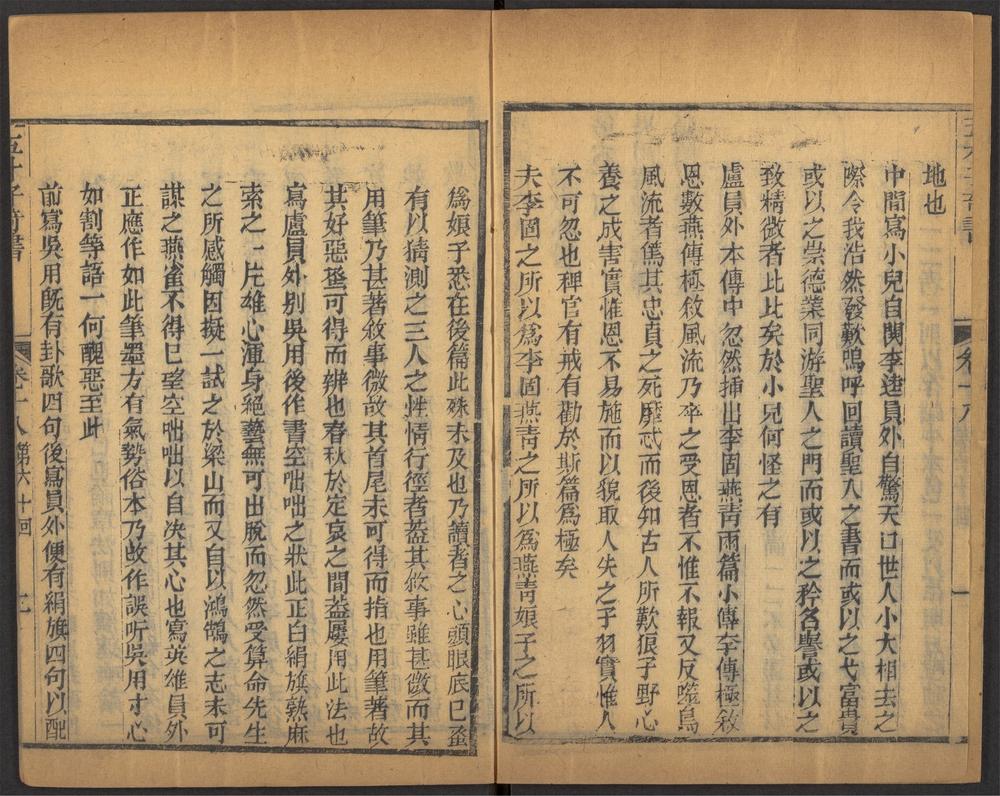 地也
中間寫小兒自閱李逵員外自驚天口世人小大相去之
際令我浩然發歎嗚呼回讀聖人之書而或以之弋富貴
或以之崇德業同游聖人之門而或以之矜名譽或以之
致精微者比比矣於小兒何怪之有
盧員外本傳中忽然揷出李固燕靑兩篇小傳李傳極敘
恩數燕傳極敘風流乃卒之受恩者不惟不報又反噬焉
風流者篤其忠貞之死靡忒而後知古人所歎狼子野心
養之成害實惟恩不易施而以貌取人失之子羽實惟人
不可忽也稗官有戒有勸於斯篇爲極矣
夫李固之所以爲李固燕靑之所以爲燕靑娘子之所以
五才子奇書
卷十八
一
爲娘子悉在後篇此殊未及也乃讀者之心頭眼底已至
有以猜測之三人之性情行徑者葢其敘事雖甚微而其
用筆乃甚著敘事微故其首尾未可得而指也用筆著故
其好惡早可得而辨也春秋於定哀之間葢屢用此法也
寫盧員外別吳用後作書空咄咄之狀此正白絹旗熟麻
索之一片雄心渾身絕藝無可出脫而忽然受算命先生
之所感觸因擬一試之於梁山而又自以鴻鵠之志未可
謀之燕雀不得已望空咄咄以自決其心也寫英雄員外
正應作如此筆墨方有氣勢俗本乃改作誤听吳用寸心
如割等語一何醜惡至此
前寫吳用旣有卦歌四句後寫員外便有絹旗四句以配
五才子奇書
卷十八
第六十回